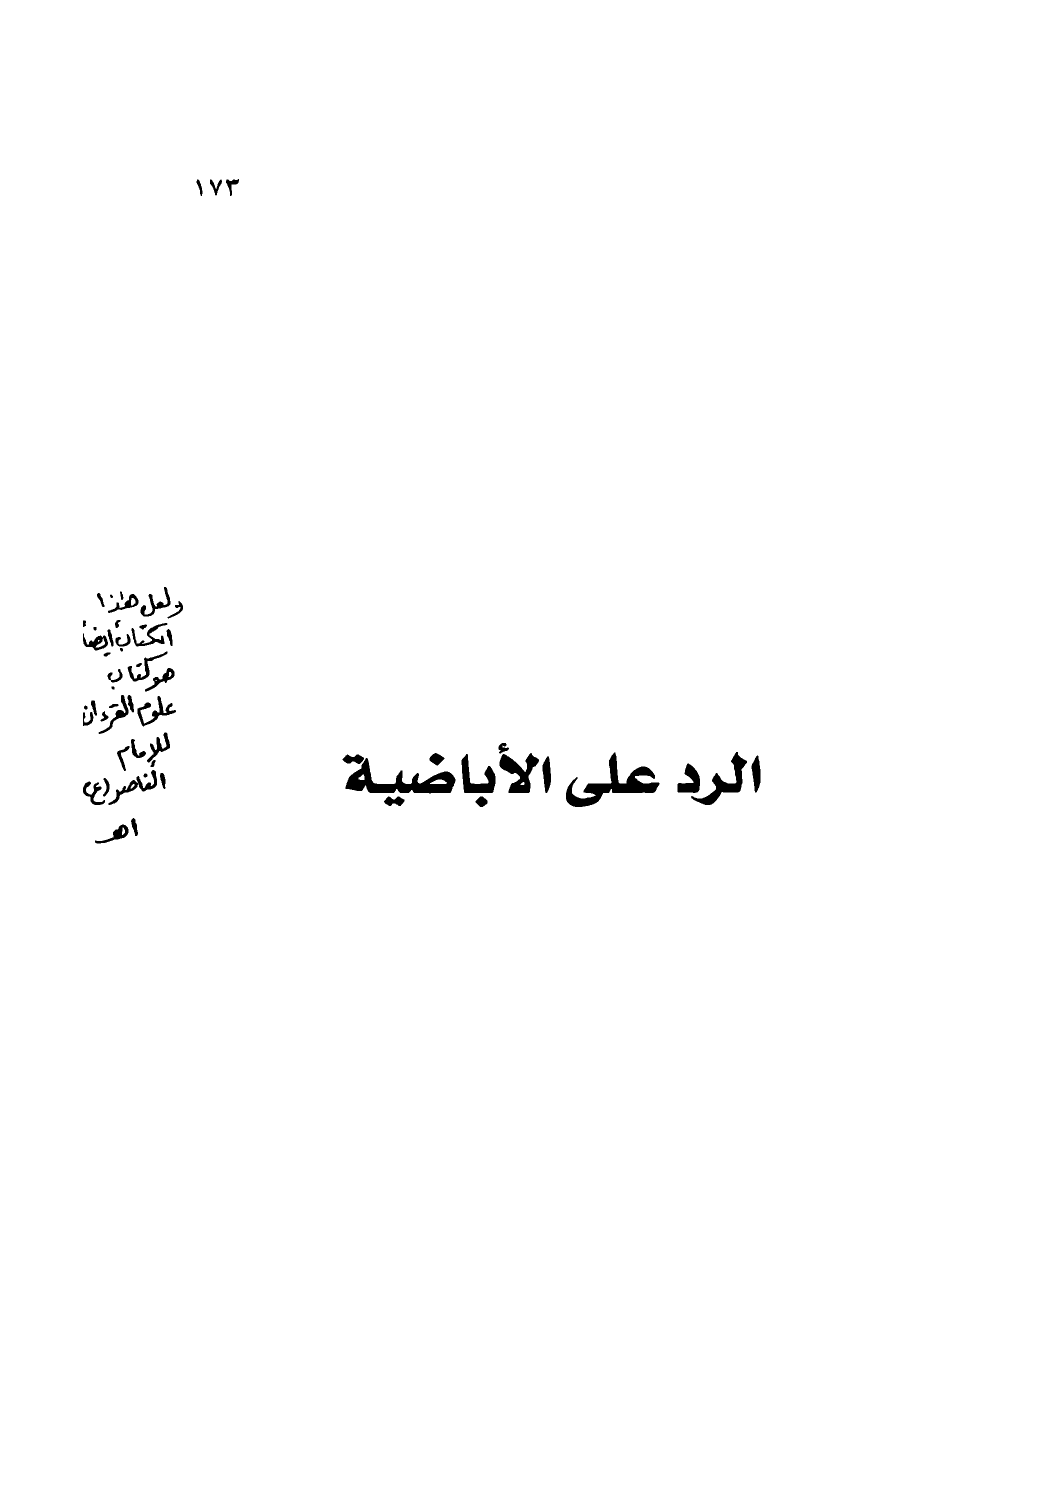 ١٧٣
ولعل هذا
الكتاب أيضاً
هو كتاب
علوم القرءان
للإمام
الناصر (ع)
اهـ
الرد على الأباضية